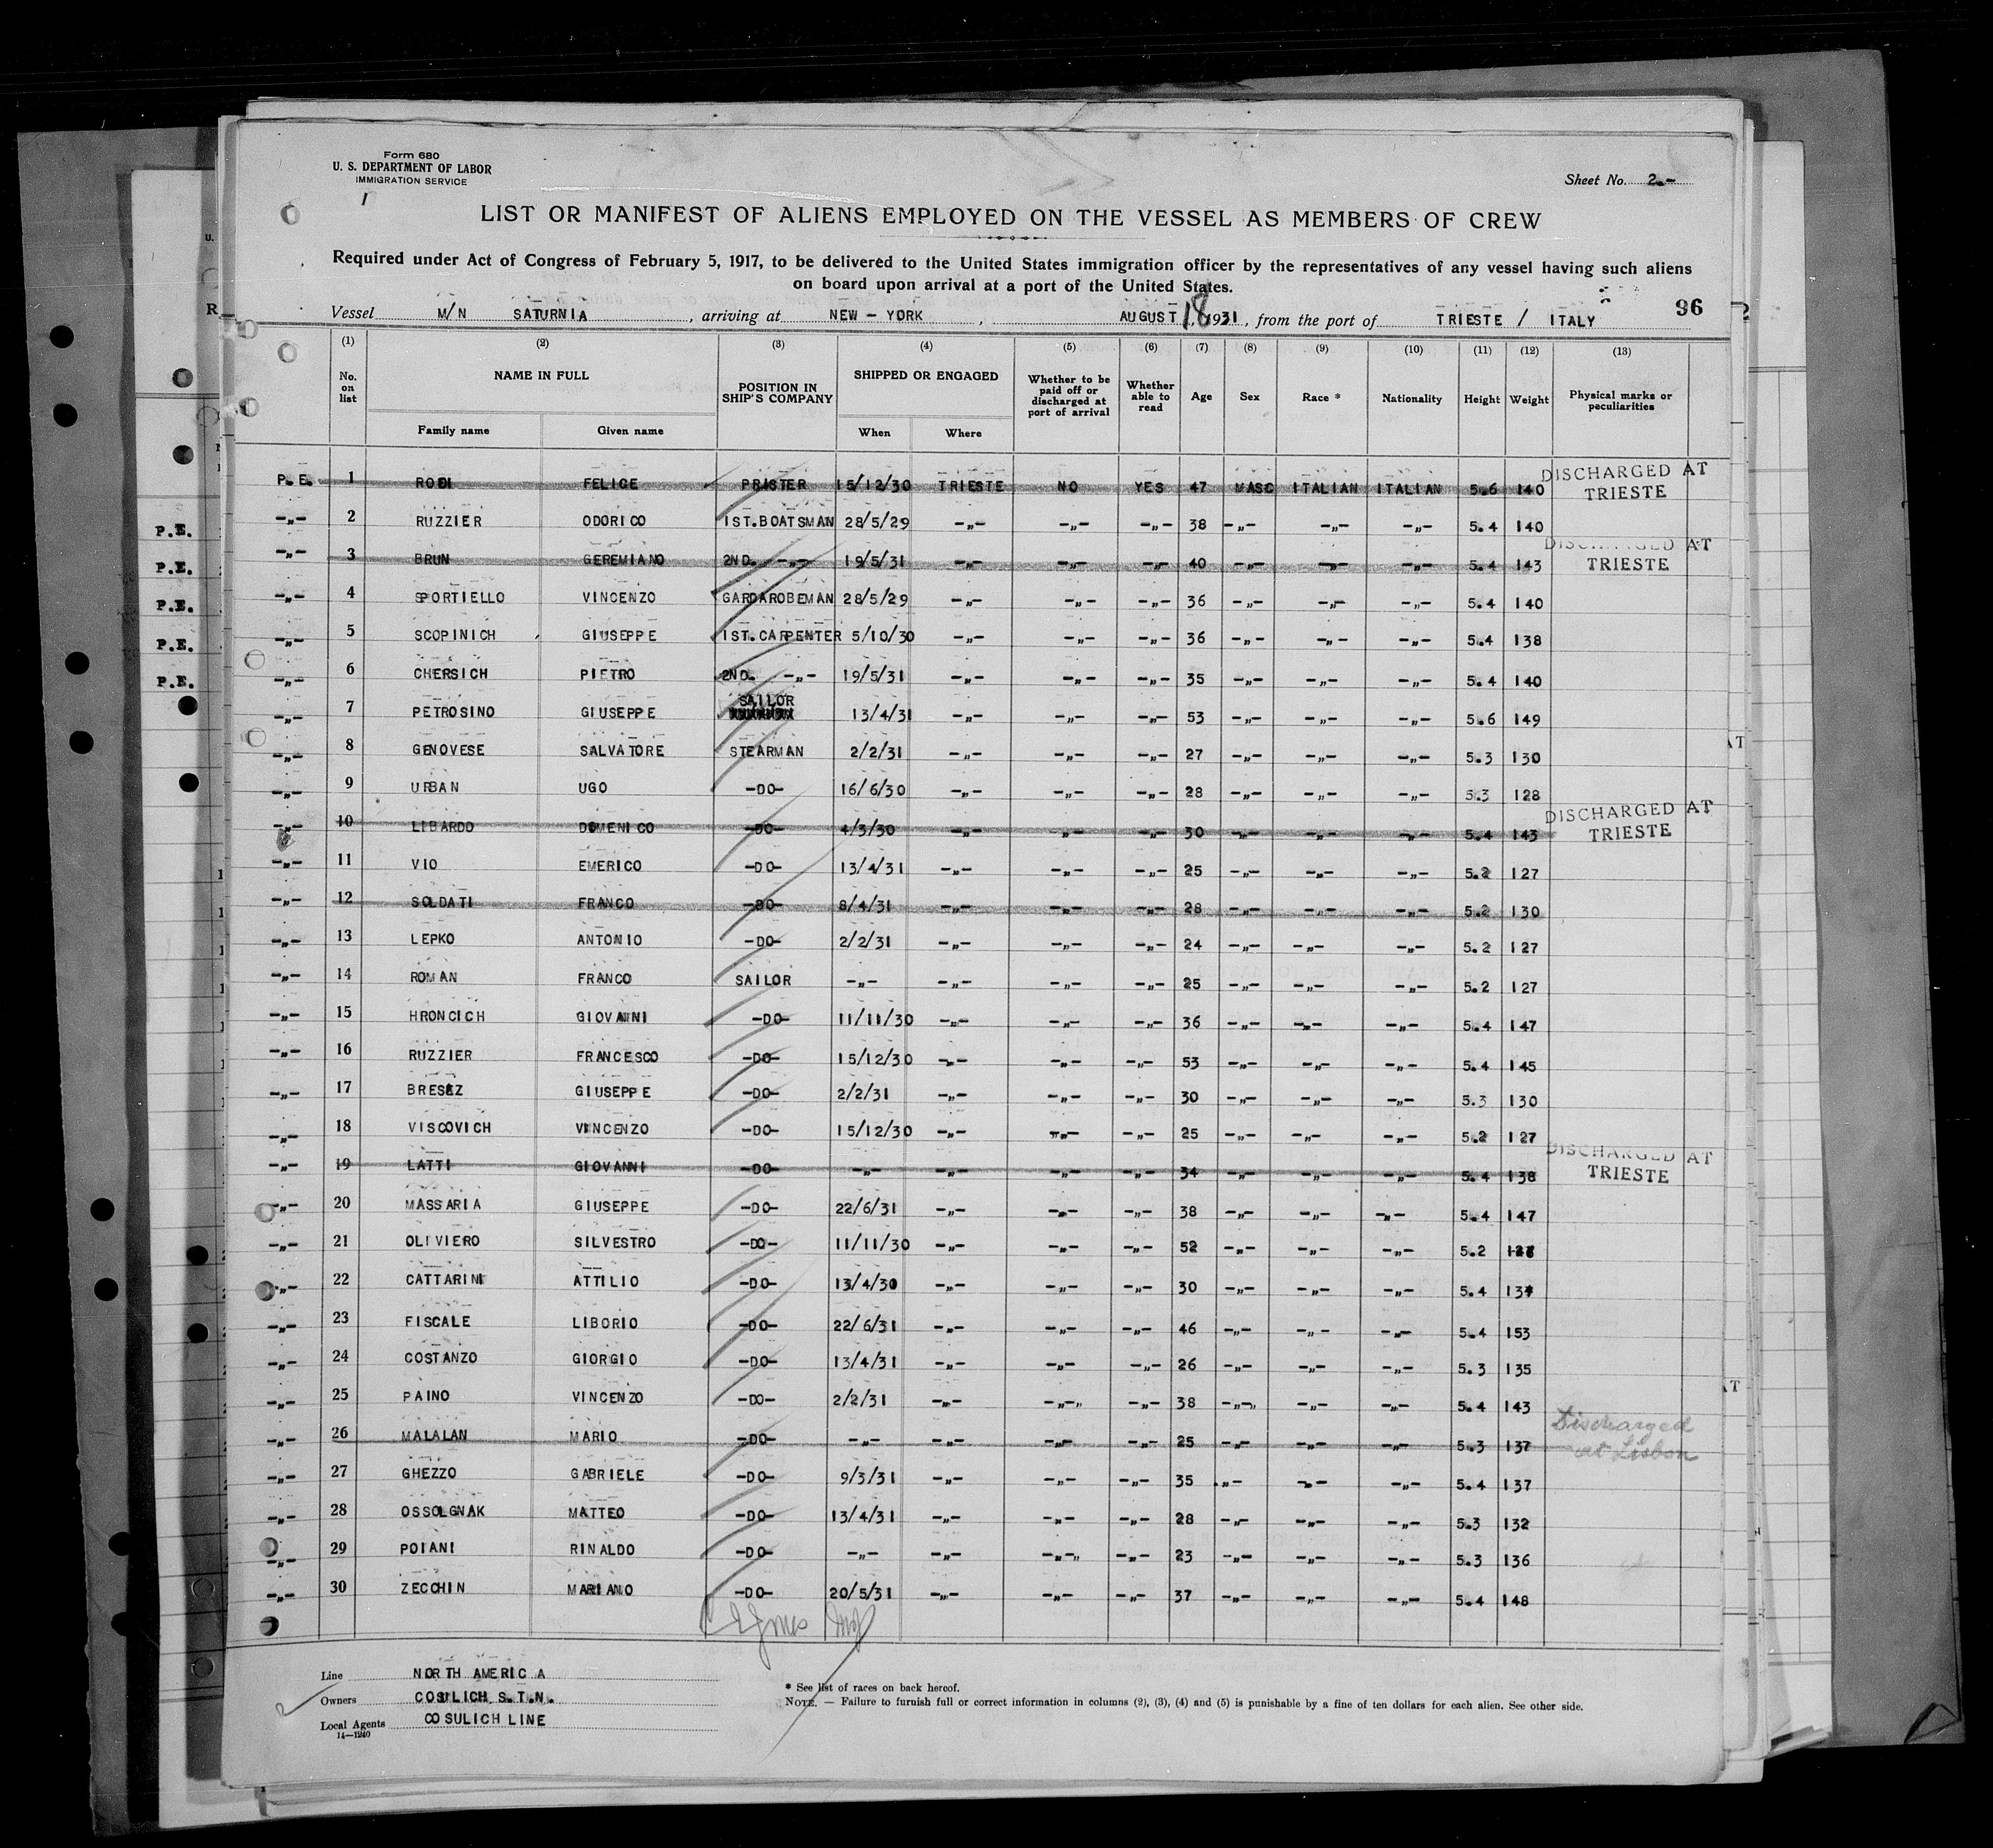 Form 680
U. S. DEPARTMENT OF LABOR
IMMIGRATION SERVICE
Sheet No. 2.-
LIST OR MANIFEST OF ALIENS EMPLOYED ON THE VESSEL AS MEMBERS OF CREW
Required under Act of Congress of February 5, 1917, to be delivered to the United States immigration officer by the representatives of any vessel having such aliens
on board upon arrival at a port of the United States.
Vessel M/N SATURNIA, arriving at NEW-YORK, AUGUST 18, 1931, from the port of TRIESTE / ITALY 96
(1) (2) (3) (4) (5) (6) (7) (8) (9) (10) (11) (12) (13)
No. on list NAME IN FULL Family name Given name POSITION IN SHIP'S COMPANY SHIPPED OR ENGAGED When Where Whether to be paid off or discharged at port of arrival Whether able to read Age Sex Race * Nationality Height Weight Physical marks or peculiarities
P.E. 1 RODI FELICE PRISTER 15/12/30 TRIESTE NO YES 47 MASC ITALIAN ITALIAN 5.6 140 DISCHARGED AT TRIESTE
P.E. -„- 2 RUZZIER ODORICO 1ST.BOATSMAN 28/5/29 -„- -„- -„- 38 -„- -„- -„- 5.4 140
P.E. -„- 3 BRUN GEREMIANO 2ND. -„- 19/5/31 -„- -„- -„- 40 -„- -„- -„- 5.4 143 DISCHARGED AT TRIESTE
P.E. -„- 4 SPORTIELLO VINCENZO GARDAROBEMAN 28/5/29 -„- -„- -„- 36 -„- -„- -„- 5.4 140
P.E. -„- 5 SCOPINICH GIUSEPPE 1ST.CARPENTER 5/10/30 -„- -„- -„- 36 -„- -„- -„- 5.4 138
P.E. -„- 6 CHERSICH PIETRO 2ND. -„- 19/5/31 -„- -„- -„- 35 -„- -„- -„- 5.4 140
-„- 7 PETROSINO GIUSEPPE SAILOR 13/4/31 -„- -„- -„- 53 -„- -„- -„- 5.6 149
-„- 8 GENOVESE SALVATORE STEARMAN 2/2/31 -„- -„- -„- 27 -„- -„- -„- 5.3 130
-„- 9 URBAN UGO -DO- 16/6/30 -„- -„- -„- 28 -„- -„- -„- 5.3 128
-„- 10 LIBARDO DOMENICO -DO- 4/3/30 -„- -„- -„- 30 -„- -„- -„- 5.4 143 DISCHARGED AT TRIESTE
-„- 11 VIO EMERICO -DO- 13/4/31 -„- -„- -„- 25 -„- -„- -„- 5.2 127
-„- 12 SOLDATI FRANCO -DO- 8/4/31 -„- -„- -„- 28 -„- -„- -„- 5.2 130
-„- 13 LEPKO ANTONIO -DO- 2/2/31 -„- -„- -„- 24 -„- -„- -„- 5.2 127
-„- 14 ROMAN FRANCO SAILOR -„- -„- -„- -„- 25 -„- -„- -„- 5.2 127
-„- 15 HRONCICH GIOVANNI -DO- 11/11/30 -„- -„- -„- 36 -„- -„- -„- 5.4 147
-„- 16 RUZZIER FRANCESCO -DO- 15/12/30 -„- -„- -„- 53 -„- -„- -„- 5.4 145
-„- 17 GIUSEPPE -DO- 2/2/31 -„- -„- -„- 30 -„- -„- -„- 5.3 130
-„- 18 VISCOVICH VINCENZO -DO- 15/12/30 -„- -„- -„- 25 -„- -„- -„- 5.2 127
-„- 19 LATTI GIOVANNI -DO- -„- -„- -„- -„- 34 -„- -„- -„- 5.4 138 DISCHARGED AT TRIESTE
-„- 20 MASSARIA GIUSEPPE -DO- 22/6/31 -„- -„- -„- 38 -„- -„- -„- 5.4 147
-„- 21 OLIVIERO SILVESTRO -DO- 11/11/30 -„- -„- -„- 52 -„- -„- -„- 5.2
-„- 22 CATTARINI ATTILIO -DO- 13/4/30 -„- -„- -„- 30 -„- -„- -„- 5.4
-„- 23 FISCALE LIBORIO -DO- 22/6/31 -„- -„- -„- 46 -„- -„- -„- 5.4 153
-„- 24 COSTANZO GIORGIO -DO- 13/4/31 -„- -„- -„- 26 -„- -„- -„- 5.3 135
-„- 25 PAINO VINCENZO -DO- 2/2/31 -„- -„- -„- 38 -„- -„- -„- 5.4 143
-„- 26 MALALAN MARIO -DO- -„- -„- -„- -„- 25 -„- -„- -„- 5.3 137 Discharged at Lisbon
-„- 27 GHEZZO GABRIELE -DO- 9/3/31 -„- -„- -„- 35 -„- -„- -„- 5.4 137
-„- 28 OSSOLGNAK MATTEO -DO- 13/4/31 -„- -„- -„- 28 -„- -„- -„- 5.3 132
-„- 29 POIANI RINALDO -DO- -„- -„- -„- -„- 23 -„- -„- -„- 5.3 136
-„- 30 ZECCHIN MARIANO -DO- 20/5/31 -„- -„- -„- 37 -„- -„- -„- 5.4 148
Line NORTH AMERICA
Owners COSULICH S.T.N.
Local Agents COSULICH LINE
14—1240
* See list of races on back hereof.
NOTE. — Failure to furnish full or correct information in columns (2), (3), (4) and (5) is punishable by a fine of ten dollars for each alien. See other side.